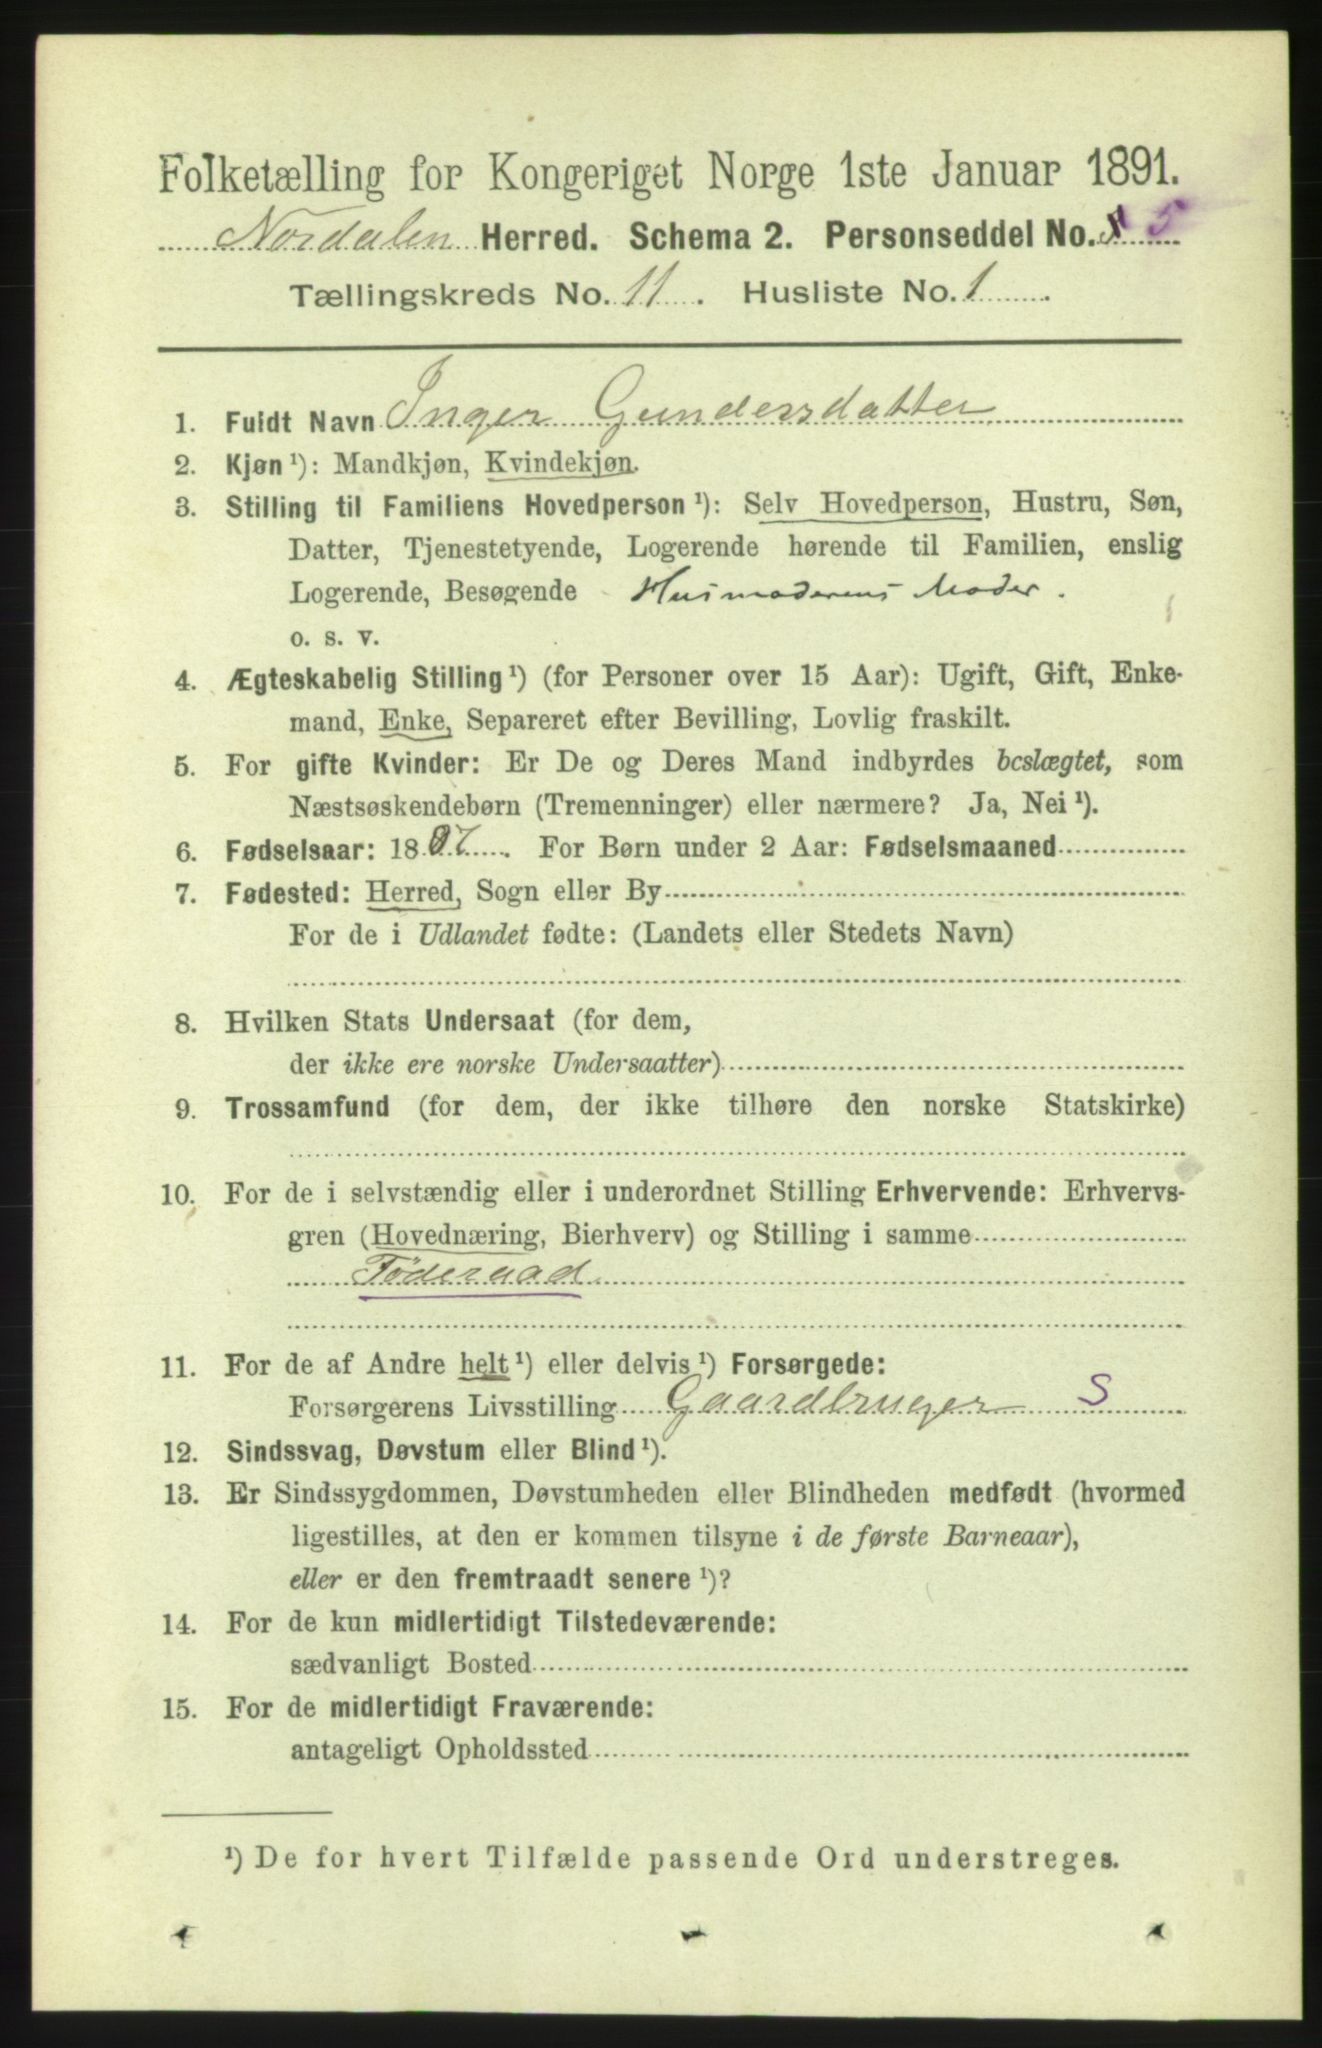 Folketælling for Kongeriget Norge 1ste Januar 1891.
Nordalen Herred. Schema 2. Personseddel No. 5
Tællingskreds No. 11. Husliste No. 1.
1. Fuldt Navn Inger Gundersdatter
2. Kjøn ¹): Mandkjøn, Kvindekjøn.
3. Stilling til Familiens Hovedperson ¹): Selv Hovedperson, Hustru, Søn,
Datter, Tjenestetyende, Logerende hørende til Familien, enslig
Logerende, Besøgende Husmoderens Moder.
o. s. v.
4. Ægteskabelig Stilling ¹) (for Personer over 15 Aar): Ugift, Gift, Enke-
mand, Enke, Separeret efter Bevilling, Lovlig fraskilt.
5. For gifte Kvinder: Er De og Deres Mand indbyrdes beslægtet, som
Næstsøskendebørn (Tremenninger) eller nærmere? Ja, Nei ¹).
6. Fødselsaar: 1807. For Børn under 2 Aar: Fødselsmaaned
7. Fødested: Herred, Sogn eller By
For de i Udlandet fødte: (Landets eller Stedets Navn)
8. Hvilken Stats Undersaat (for dem,
der ikke ere norske Undersaatter)
9. Trossamfund (for dem, der ikke tilhøre den norske Statskirke)
10. For de i selvstændig eller i underordnet Stilling Erhvervende: Erhvervs-
gren (Hovednæring, Bierhverv) og Stilling i samme
Föderaad
11. For de af Andre helt ¹) eller delvis ¹) Forsørgede:
Forsørgerens Livsstilling Gaardbruger S
12. Sindssvag, Døvstum eller Blind ¹).
13. Er Sindssygdommen, Døvstumheden eller Blindheden medfødt (hvormed
ligestilles, at den er kommen tilsyne i de første Barneaar),
eller er den fremtraadt senere ¹)?
14. For de kun midlertidigt Tilstedeværende:
sædvanligt Bosted
15. For de midlertidigt Fraværende:
antageligt Opholdssted
¹) De for hvert Tilfælde passende Ord understreges.